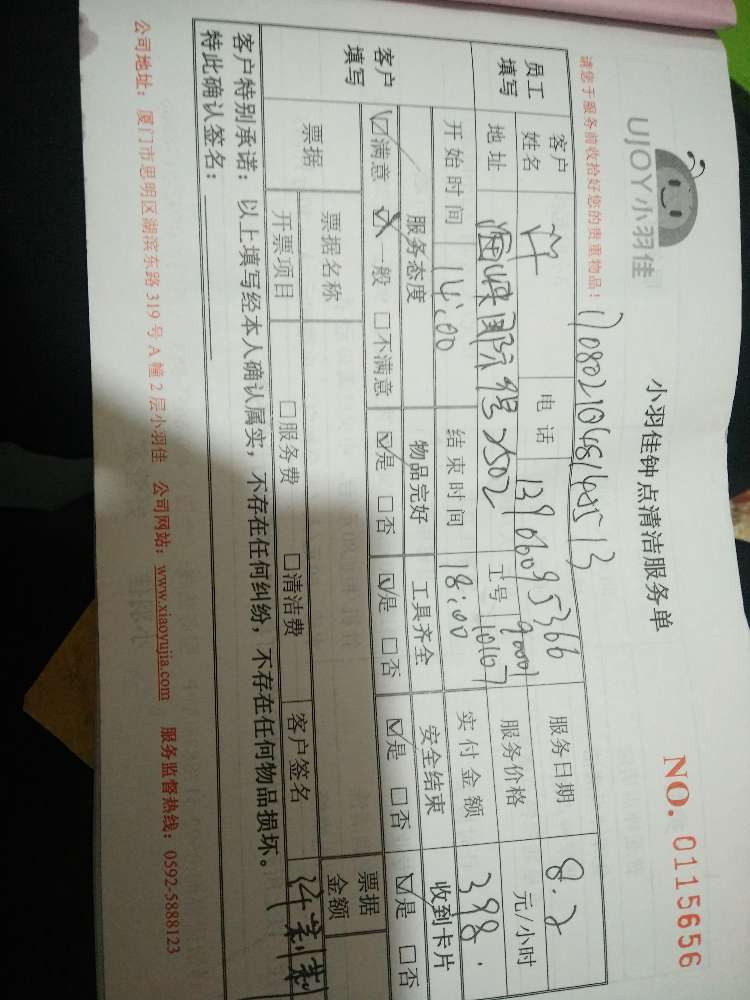 UJOY小羽佳
小羽佳钟点清洁服务单
NO. 0115656
请您于服务前收拾好您的贵重物品！
员工填写
客户姓名 许 电话 13906095366 服务日期 8.2
地址 海峡国际 2502 工号 服务价格 元/小时
开始时间 14:00 结束时间 18:00 实付金额 398.
客户填写
服务态度 物品完好 工具齐全 安全结束 收到卡片
☑满意 ☑一般 □不满意 ☑是 □否 ☑是 □否 ☑是 □否 ☑是 □否
票据 票据名称 票据金额
开票项目 □服务费 □清洁费 客户签名
客户特别承诺：以上填写经本人确认属实，不存在任何纠纷，不存在任何物品损坏。
特此确认签名：
公司地址：厦门市思明区湖滨东路319号A幢2层小羽佳 公司网站：www.xiaoyujia.com 服务监督热线：0592-5888123